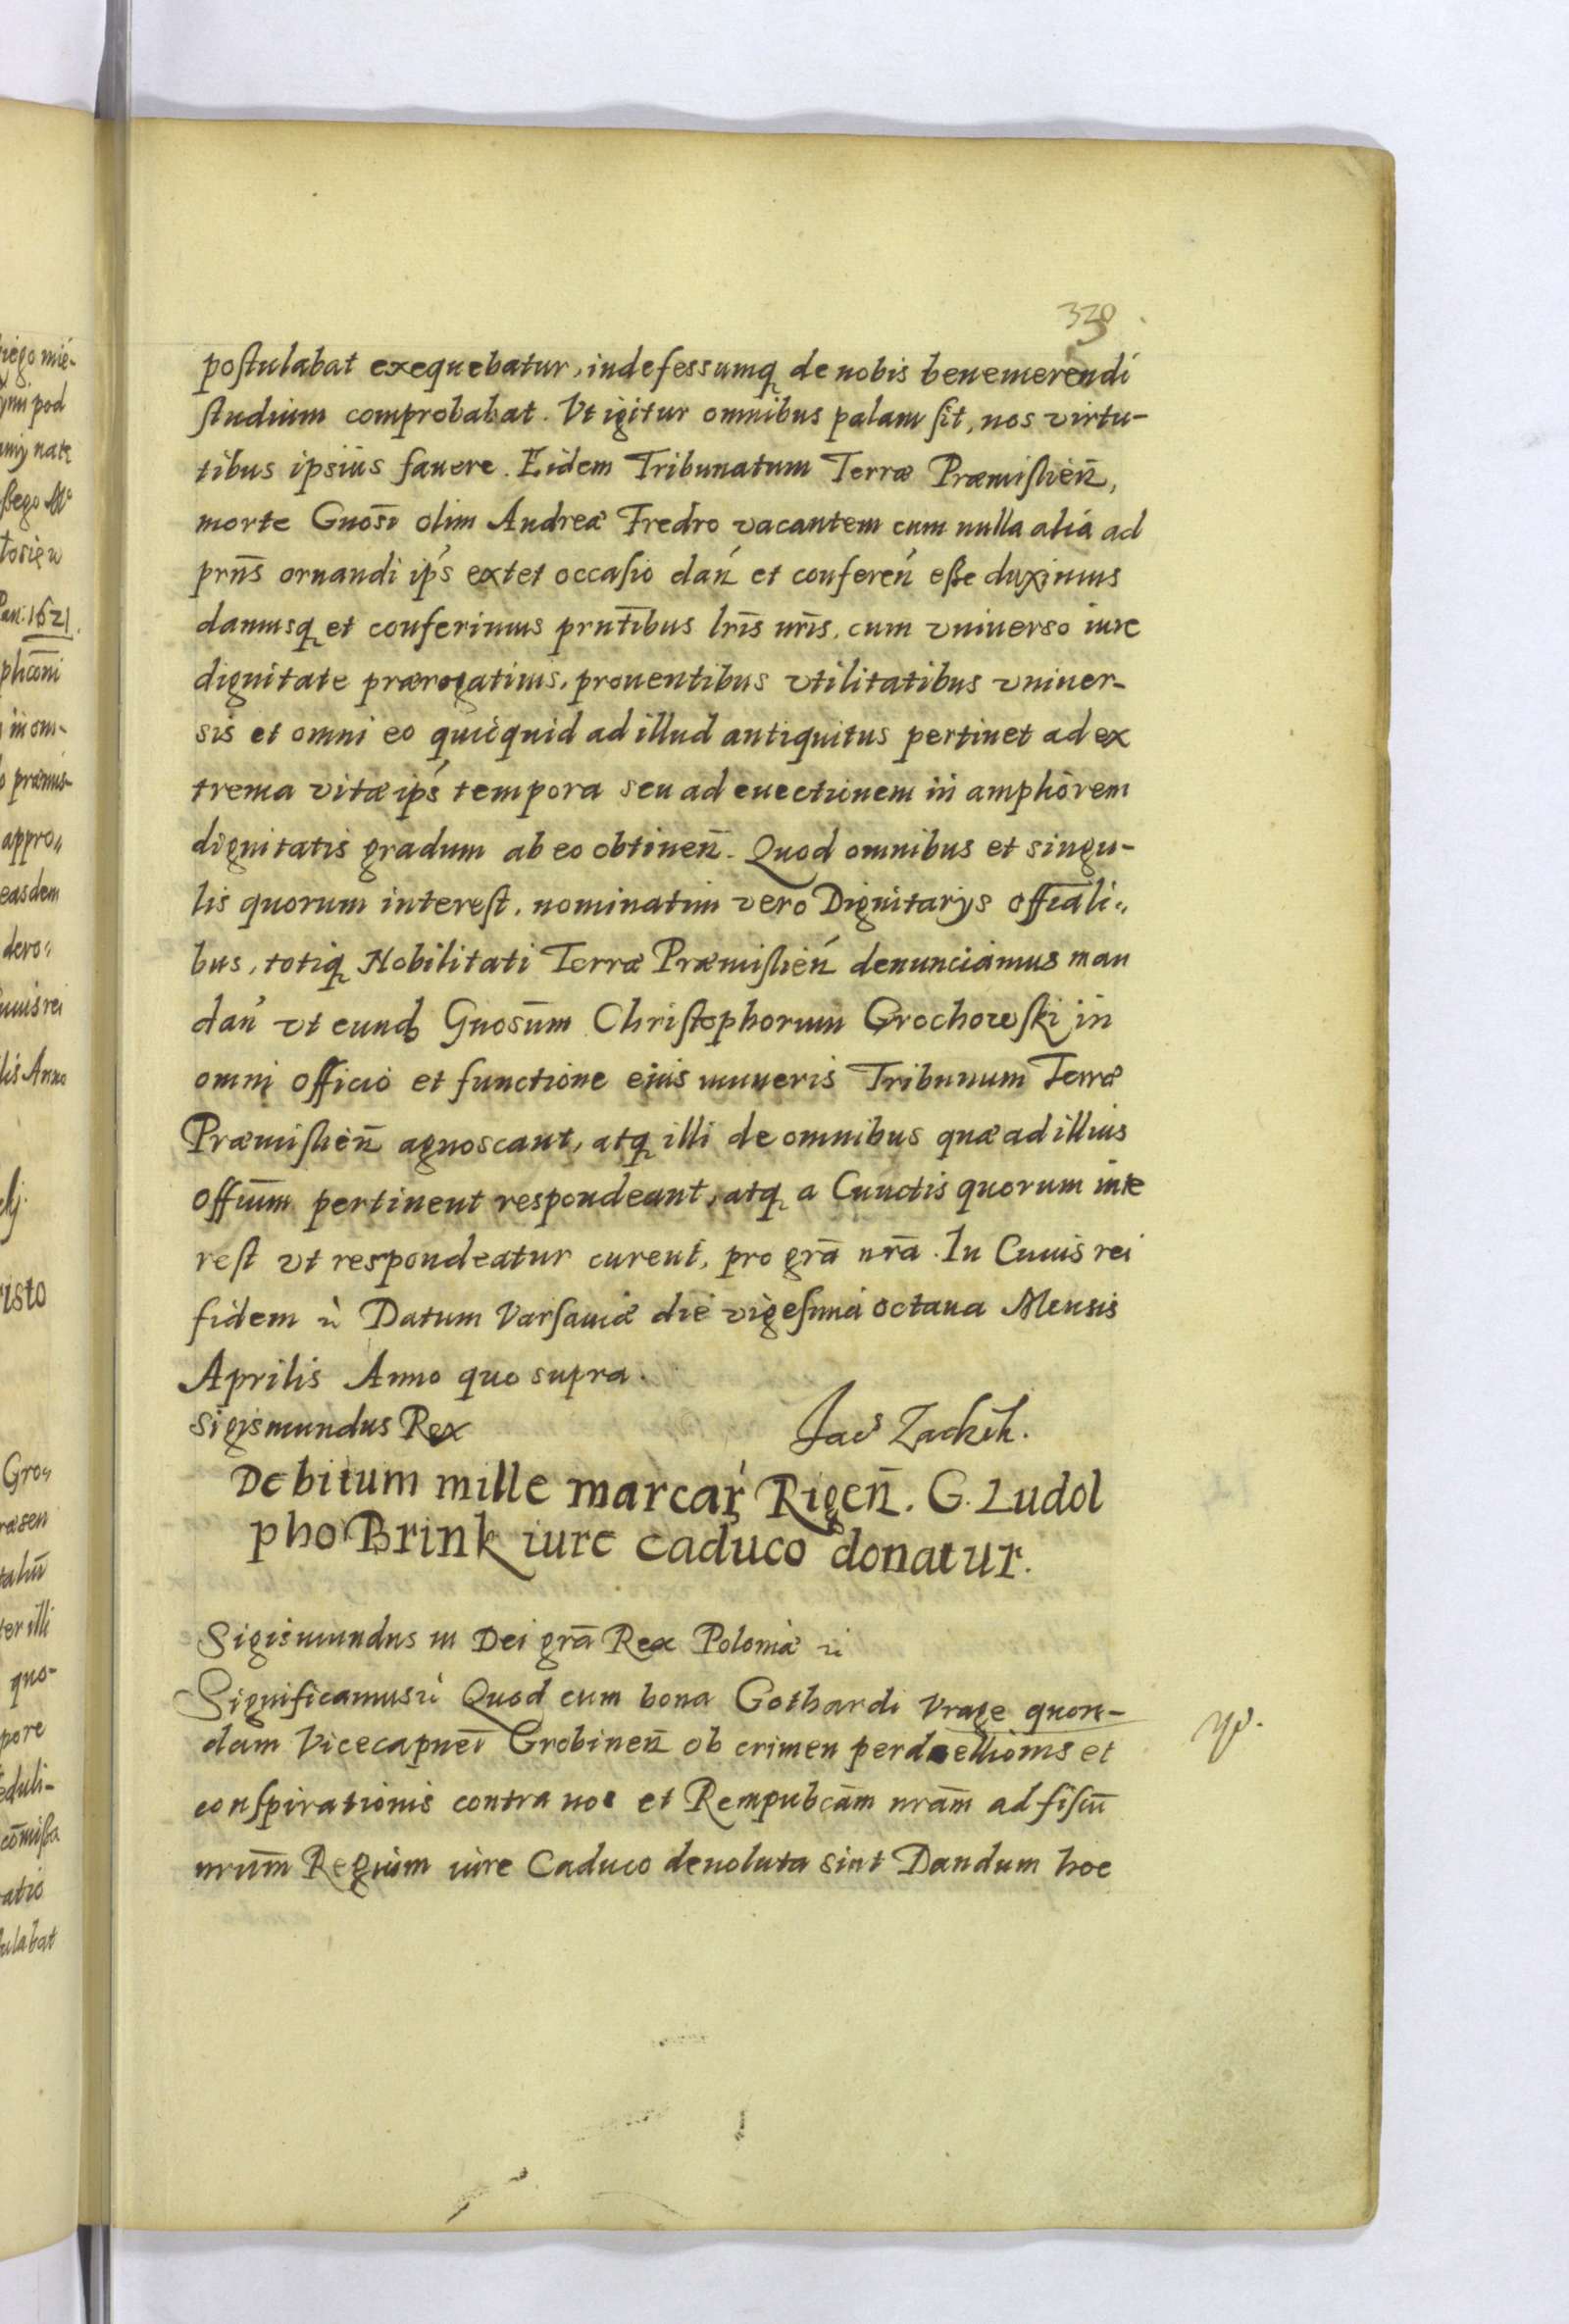 postulabat exequebatur, indefessumq de nobis benemerendi
studium comprobabat. Vt igitur omnibus palam sit, nos virtu-
tibus ipsius fauere. Eidem Tribunatum Terræ Præmislień,
morte Gnosi olim Andreæ Fredro vacantem cum nulla alia ad
prns ornandi ips extet occasio dań et confereń esse duximus
damusq et conferimus prntibus lris nris, cum vniuerso iure
dignitate prærogatiuis, prouentibus vtilitatibus vniuer-
sis et omni eo quicquid ad illud antiquitus pertinet ad ex
trema vitæ ips tempora seu ad euectionem in ampliorem
dignitatis gradum ab eo obtineñ. Quod omnibus et singu-
lis quorum interest, nominatim vero Dignitarys officiali-
bus, totiq Nobilitati Terræ Præmislień denunciamus man
dań vt eund Gnosum Christophorum Grochowski in
omni officio et functione eius muneris Tribunum Terræ
Præmislień agnoscant, atq illi de omnibus quæ ad illius
offium pertinent respondeant, atq a Cunctis quorum inte
rest vt respondeatur curent, pro gra nra. In Cuius rei
fidem Datum Varsauiæ die vigesima octaua Mensis
Aprilis Anno quo supra.
Sigismundus Rex Jac Zadzik.
Debitum mille marcar Rigeñ. G. Ludol
pho Brink iure caduco donatur.
Sigismundus III Dei gra Rex Poloniæ
Significamus Quod cum bona Gothardi Vrage quon-
dam Vicecapnei Grobineñ ob crimen perduellionis et
conspirationis contra nos et Rempubcam nram ad fiscu
nrum Regium iure Caduco deuoluta sint Dandum hoc